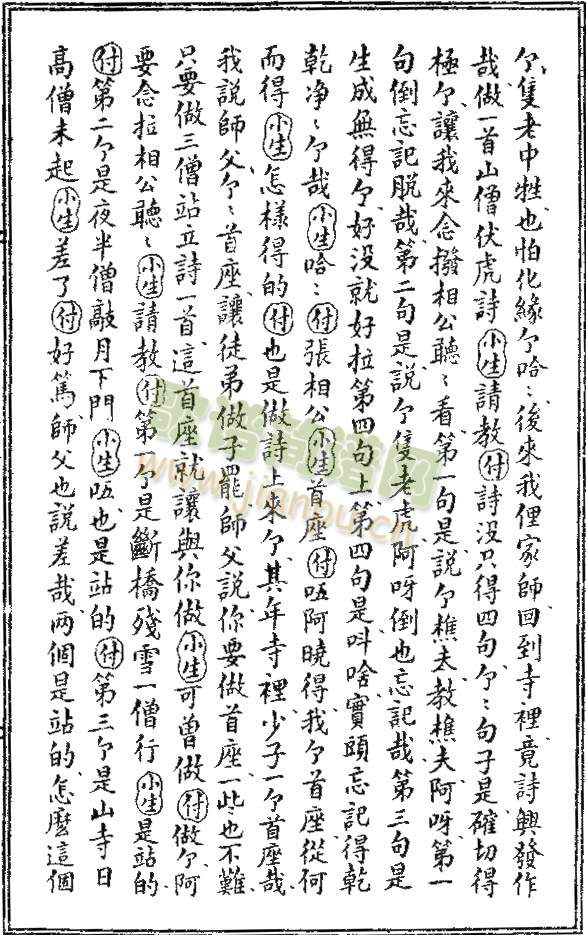 个隻老中牲也怕化緣个哈〻後來我俚家師回到寺裡竟詩興發作
哉做一首山僧伏虎詩小生請教付詩没只得四句个〻句子是確切得
極个讓我來念撥相公聽〻看第一句是説个樵夫教樵夫阿呀第一
句倒忘記脱哉第二句是説个隻老虎阿呀倒也忘記哉第三句是
生成無得个好没就好拉第四句上第四句是呌啥實頭忘記得乾
乾净〻个哉小生哈〻付張相公小生首座付㕶阿曉得我个首座從何
而得小生怎樣得的付也是做詩上來个其年寺裡少子一个首座哉
我説師父个〻首座讓徒弟做子罷師父説你要做首座一些也不難
只要做三僧站立詩一首這首座就讓與你做小生可曾做付做个阿
要念拉相公聽〻小生請教付第一个是斷橋殘雪一僧行小生是站的
付第二个是夜半僧敲月下門小生㕶也是站的付第三个是山寺日
高僧未起小生差了付好篤師父也説差哉两個是站的怎麽這個
www.jianpu.cn